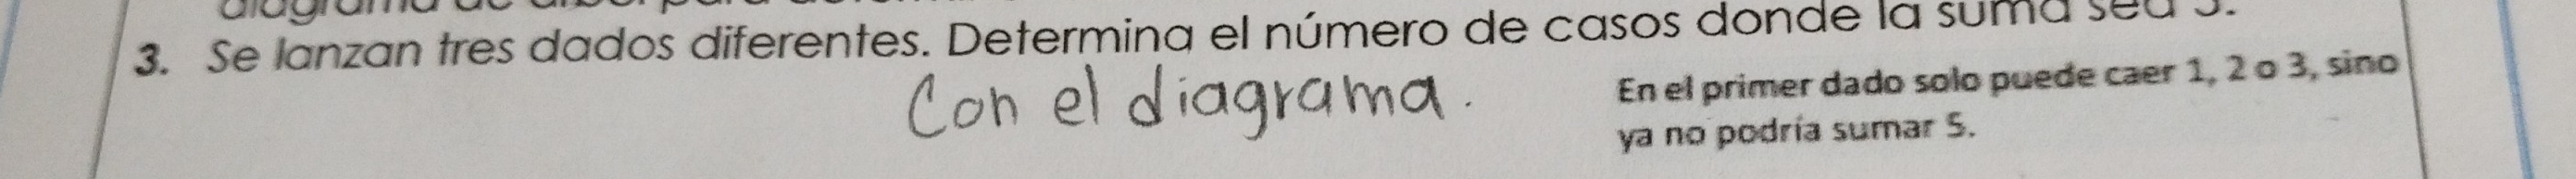 diagrama de
3. Se lanzan tres dados diferentes. Determina el número de casos donde la suma sea 5.
Con el diagrama.
En el primer dado solo puede caer 1, 2 o 3, sino
ya no podría sumar 5.